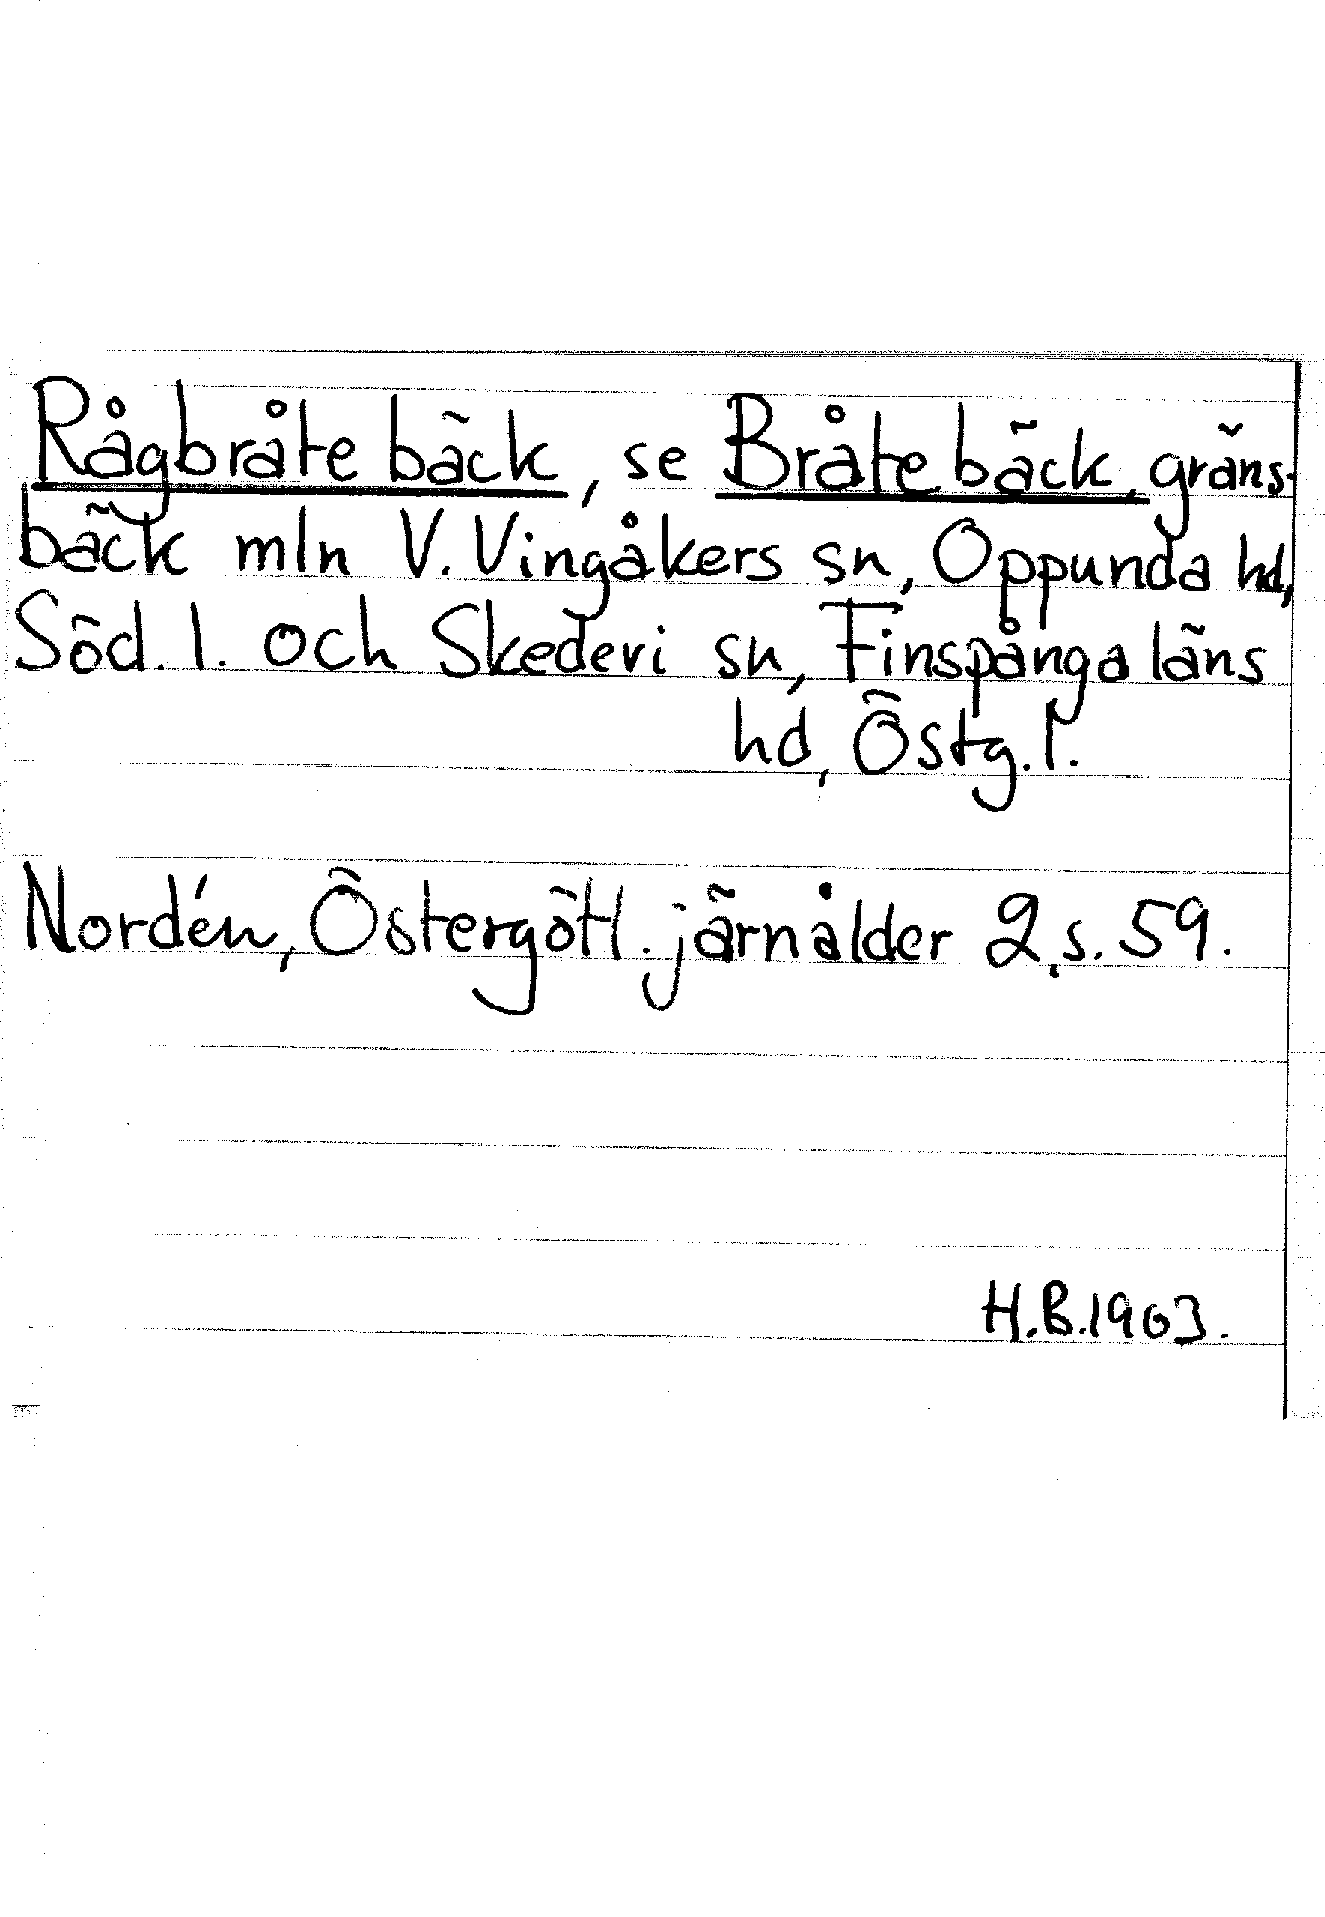 Rågbråte bäck, se Bråte bäck, gräns-
bäck mln V. Vingåkers sn, Oppunda hd,
Söd. l. och Skedevi sn, Finspånga läns
hd, Östg. l.
Nordén, Östergötl. järnålder 2, s. 59.
H.B. 1963.